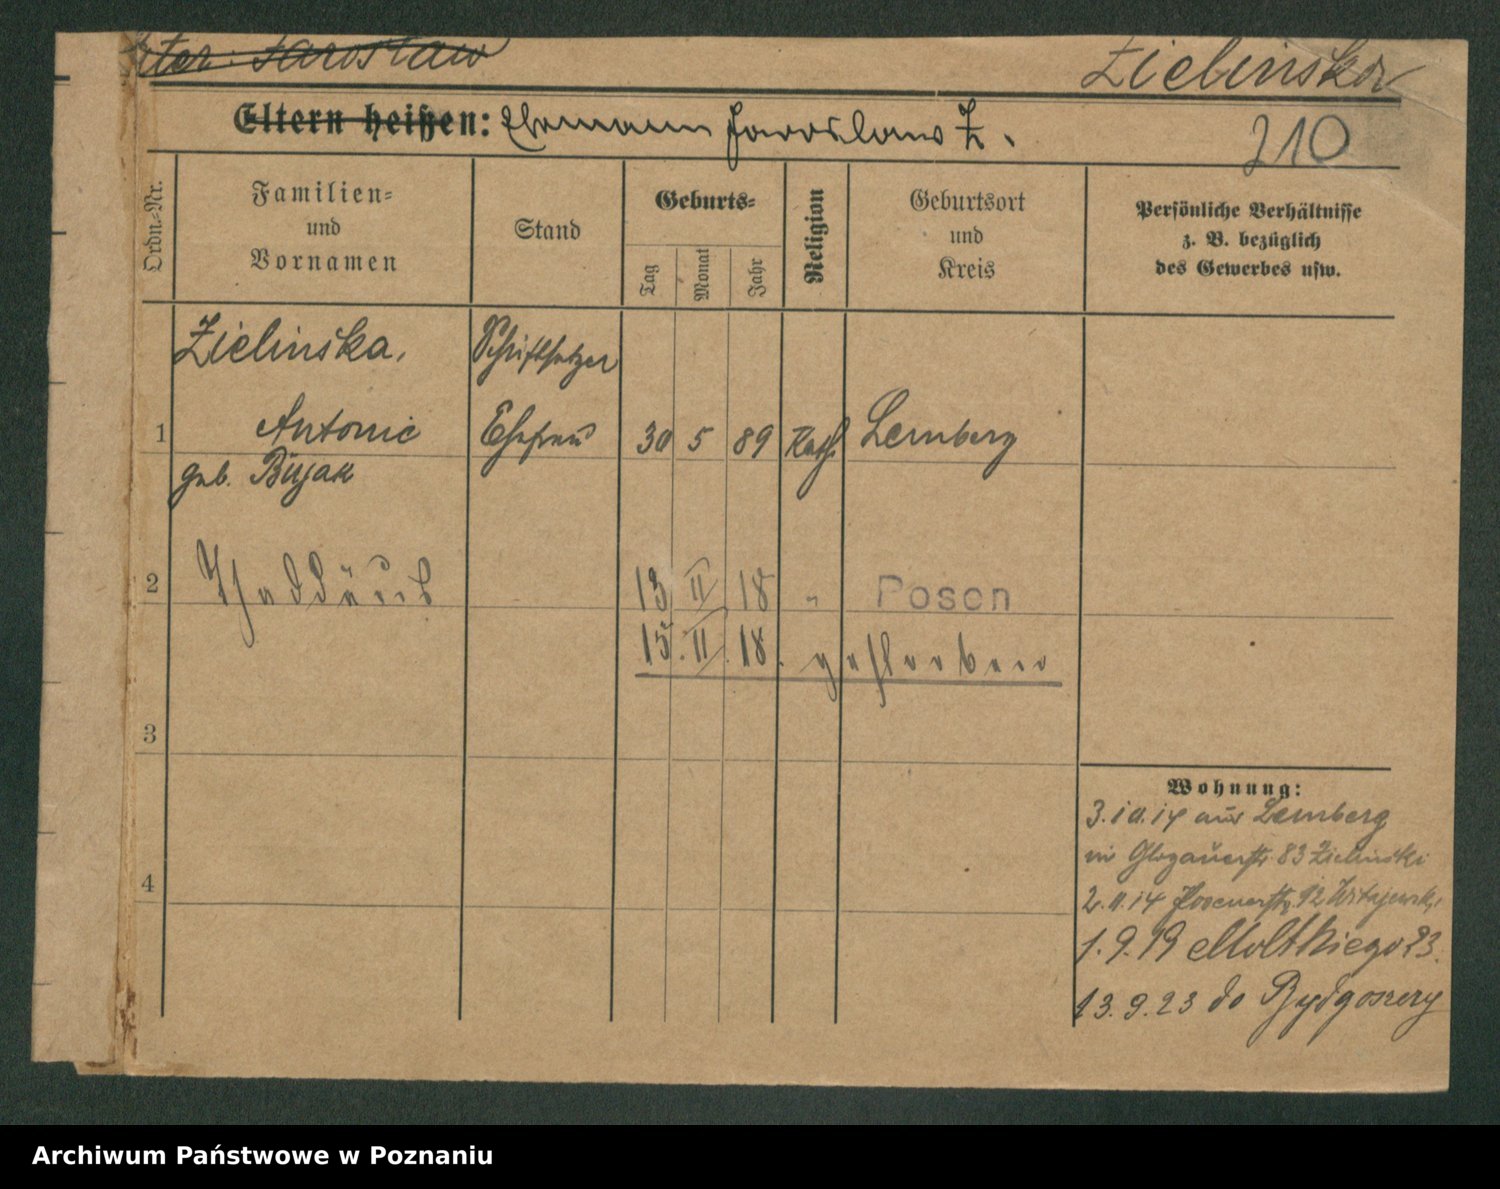 Jarosław
Zielinska
Eltern heißen: Ehemann Jaroslaus Z.
210
Ordn.-Nr.
Familien-
und
Vornamen
Stand
Geburts-
Tag
Monat
Jahr
Religion
Geburtsort
und
Kreis
Persönliche Verhältnisse
z. B. bezüglich
des Gewerbes usw.
Zielinska, Schriftsetzer
1 Antonie Ehefrau 30 5 89 Kath. Lemberg
geb. Bujak
2 Thaddäus 13 II 18 " Posen
15. II. 18. gestorben
3
Wohnung:
3.10.14 aus Lemberg
in Glogauerstr. 83 Zielinski
4
2.11.14 Posenerstr. 12
1.9.19 Moltkiego 23.
13.9.23 do Bydgoszczy
Archiwum Państwowe w Poznaniu